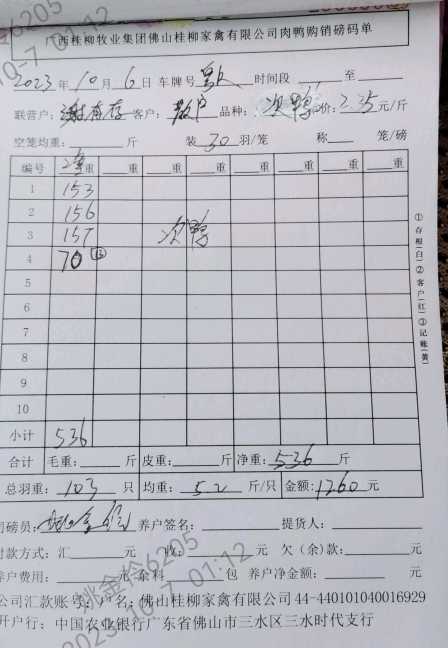 西桂柳牧业集团佛山桂柳家禽有限公司肉鸭购销磅码单
2023年10月6日 车牌号 时间段 至
联营户: 谢 存 客户: 散户 品种: 次鸭 价: 2.35元/斤
空笼均重: 斤 装 30 羽/笼 称 笼/磅
编号 净重 重 重 重 重 重 重 重
1 153
2 156
3 157 次鸭
4 70 ⑬
5
6
7
8
9
10
小计 536
合计 毛重: 斤 皮重: 斤 净重: 536 斤
总羽重: 103 只 均重: 5.2 斤/只 金额: 1260 元
司磅员: 养户签名: 提货人:
付款方式: 汇 元 收: 元 欠(余)款: 元
养户费用: 元 余料 包 养户净金额: 元
公司汇款账号: 户名: 佛山桂柳家禽有限公司 44-440101040016929
开户行: 中国农业银行广东省佛山市三水区三水时代支行
①存根(白)②客户(红)③记账(黄)
姚金伶6205
2023-10-7 01:12